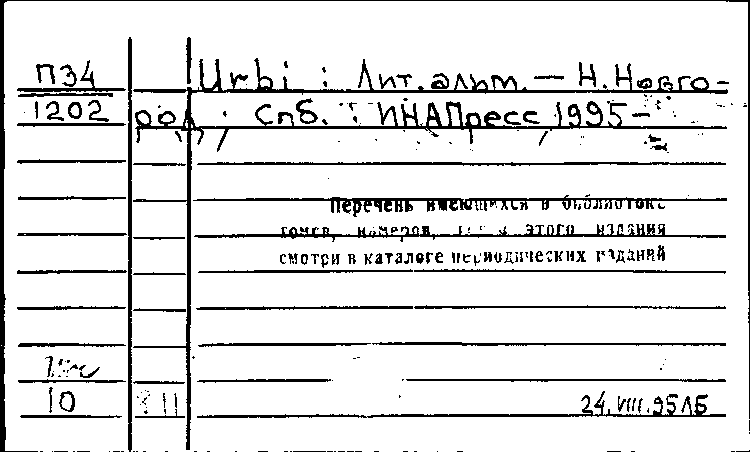 П34 Urbi : Лит. альм. — Н. Новго-
1202 род ; Спб. : ИНАПресс, 1995-
Перечень имеющихся в библиотеке
томов, номеров, этого издания
смотри в каталоге периодических изданий
10 24.VIII.95ЛБ